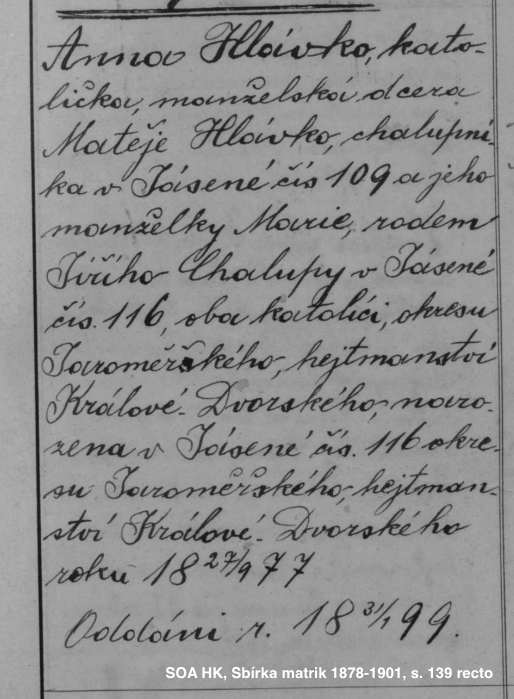 Anna Hlávko, kato-
lička, manželská dcera
Matěje Hlávko, chalupní-
ka v Jásené čís 109 a jeho
manželky Marie, rodem
Jiřího Chalupy v Jásené
čís. 116, oba katolíci, okresu
Jaroměřského, hejtmanství
Králové-Dvorského, naro-
zena v Jásené čís. 116 okre-
su Jaroměřského, hejtman-
ství Králové-Dvorského
roku 18 27/9 77
Oddáni r. 18 31/1 99.
SOA HK, Sbírka matrik 1878-1901, s. 139 recto